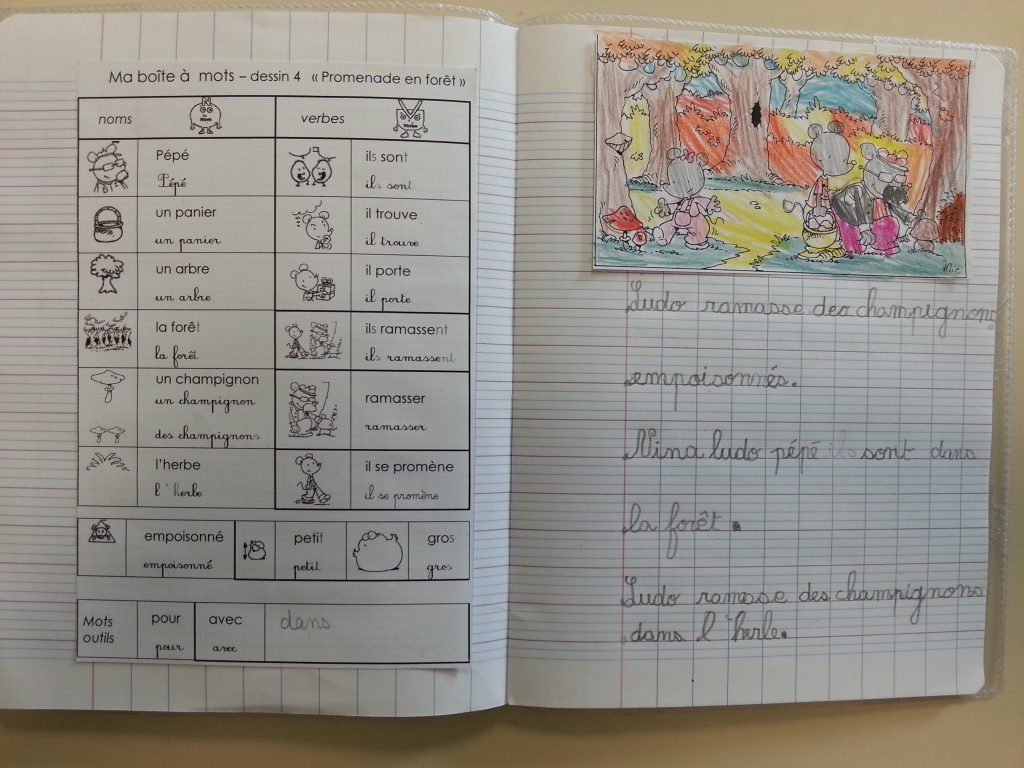 Ma boîte à mots – dessin 4 « Promenade en forêt »
noms
verbes
Pépé
Pépé
ils sont
ils sont
un panier
un panier
il trouve
il trouve
un arbre
un arbre
il porte
il porte
la forêt
la forêt
ils ramassent
ils ramassent
un champignon
un champignon
des champignons
ramasser
ramasser
l'herbe
l'herbe
il se promène
il se promène
empoisonné
empoisonné
petit
petit
gros
gros
Mots
outils
pour
pour
avec
avec
dans
Ludo ramasse des champignons
empoisonnés.
Nina ludo pépé ils sont dans
la forêt.
Ludo ramasse des champignons
dans l'herle.